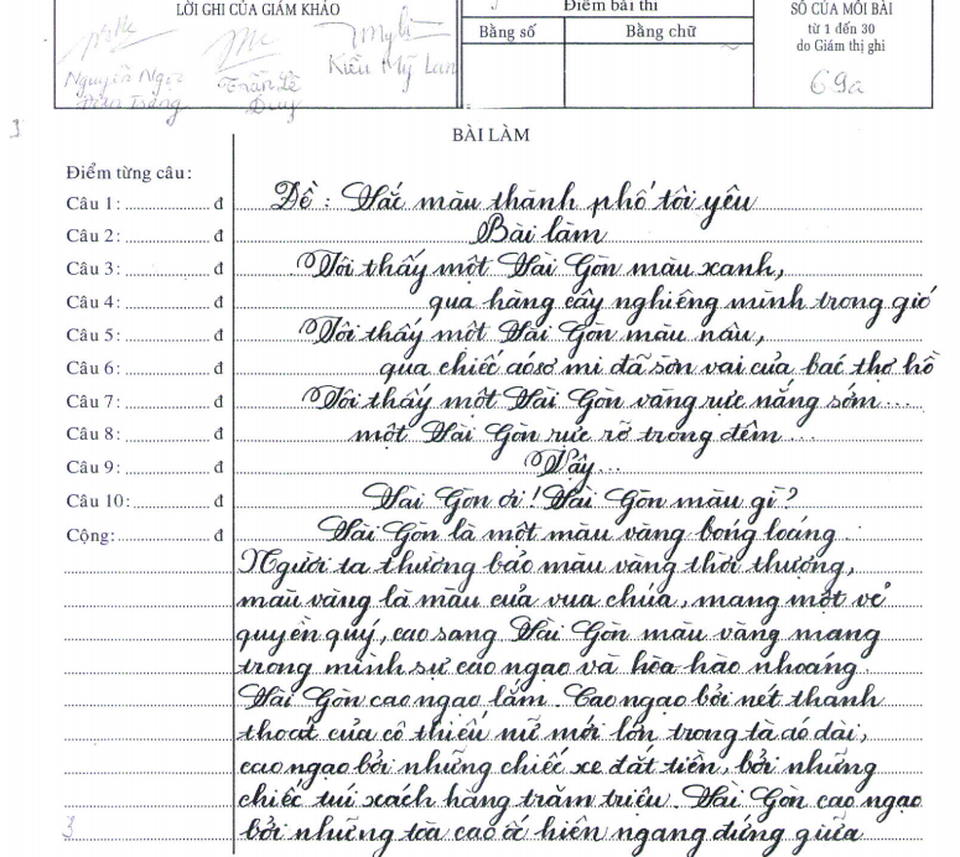 LỜI GHI CỦA GIÁM KHẢO
Điểm bài thi
Bằng số
Bằng chữ
SỐ CỦA MỖI BÀI
từ 1 đến 30
do Giám thị ghi
69a
Nguyễn Ngọc
Trần Lê
Duy
Kiều Mỹ Lan
BÀI LÀM
Điểm từng câu:
Câu 1: ............ đ
Câu 2: ............ đ
Câu 3: ............ đ
Câu 4: ............ đ
Câu 5: ............ đ
Câu 6: ............ đ
Câu 7: ............ đ
Câu 8: ............ đ
Câu 9: ............ đ
Câu 10: ............ đ
Cộng: ............ đ
Đề : Sắc màu thành phố tôi yêu
Bài làm
Tôi thấy một Sài Gòn màu xanh,
qua hàng cây nghiêng mình trong gió
Tôi thấy một Sài Gòn màu nâu,
qua chiếc áo sơ mi đã sờn vai của bác thợ hồ
Tôi thấy một Sài Gòn vàng rực nắng sớm...
một Sài Gòn rực rỡ trong đêm...
Vậy...
Sài Gòn ơi! Sài Gòn màu gì?
Sài Gòn là một màu vàng bóng loáng.
Người ta thường bảo màu vàng thời thượng,
màu vàng là màu của vua chúa, mang một vẻ
quyền quý, cao sang. Sài Gòn màu vàng mang
trong mình sự cao ngạo và hòa hào nhoáng.
Sài Gòn cao ngạo lắm. Cao ngạo bởi nét thanh
thoát của cô thiếu nữ mới lớn trong tà áo dài,
cao ngạo bởi những chiếc xe đắt tiền, bởi những
chiếc túi xách hàng trăm triệu. Sài Gòn cao ngạo
bởi những tòa cao ốc hiên ngang đứng giữa